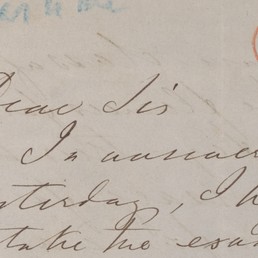 Dear Sir
In answer
yesterday, I h
take the exa